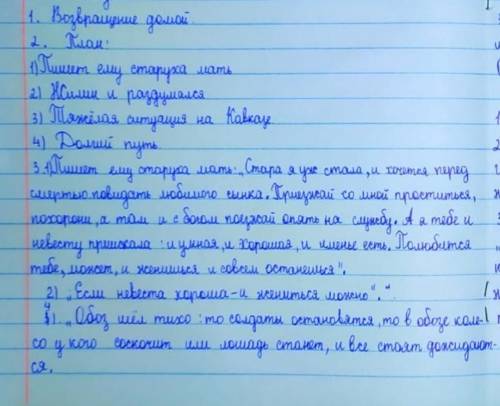 1. Возвращение домой.
2. План:
1) Пишет ему старуха мать
2) Жилин и раздумался
3) Тяжёлая ситуация на Кавказе
4) Долгий путь
3.1) Пишет ему старуха мать: „Стара я уж стала, и хочется перед
смертью повидать любимого сынка. Приезжай со мной проститься,
похорони, а там и с богом поезжай опять на службу. А я тебе и
невесту приискала: и умная, и хорошая, и именье есть. Полюбится
тебе, может, и женишься и совсем останешься".
2) „Если невеста хороша - и жениться можно".
4). „Обоз шёл тихо: то солдаты остановятся, то в обозе коле-
со у кого соскочит или лошадь станет, и все стоят дожидают-
ся.